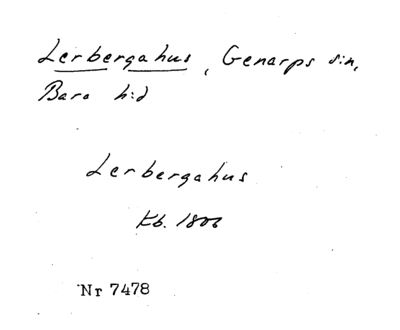 Lerbergahus, Genarps sn,
Bara h:d
Lerbergahus
Kb. 1806
Nr 7478